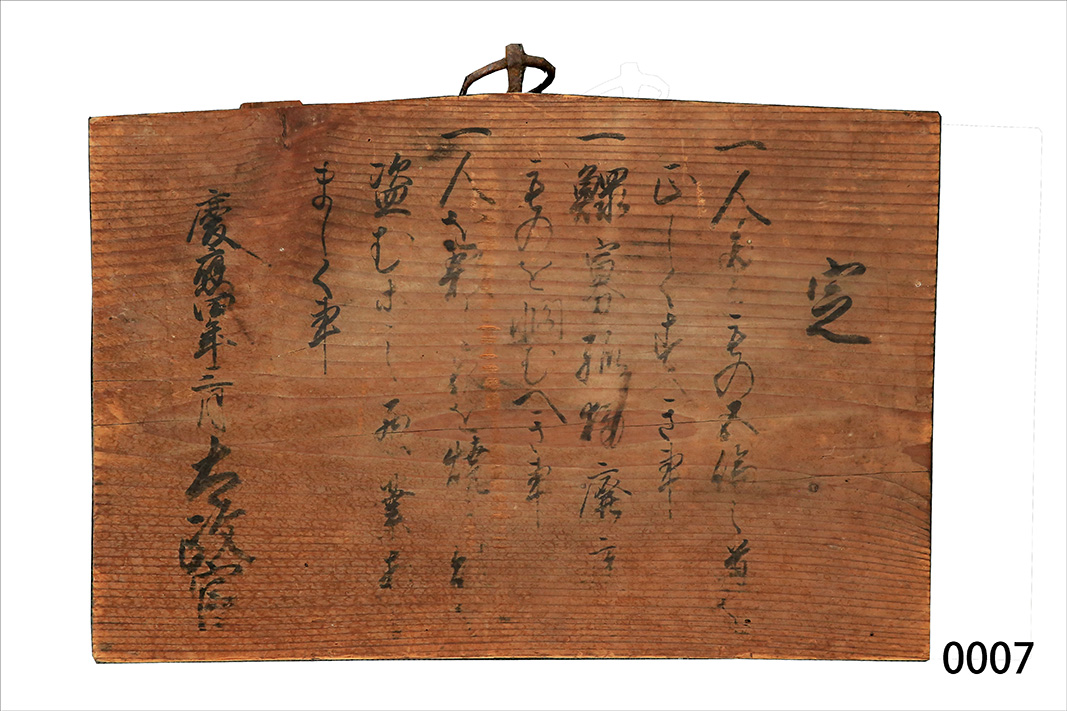 定
一人たるもの五倫之道を
正しくすへき事
一鰥寡孤獨廢疾
ものを憫むへき事
一人を殺し家を焼き財を
盗む等之悪業ある
ましく事
慶應四年三月 太政官
0007